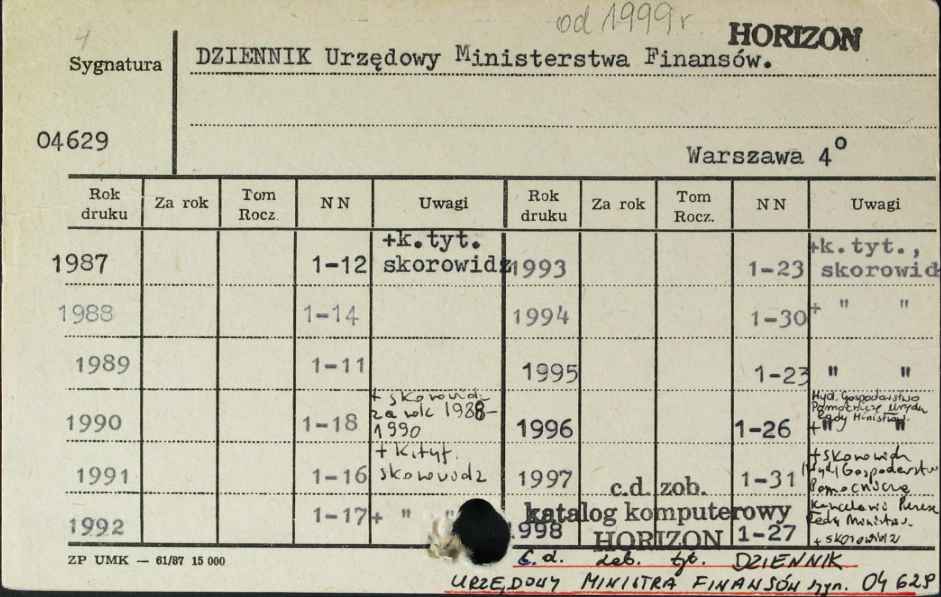 od 1999 r
HORIZON
Sygnatura
DZIENNIK Urzędowy Ministerstwa Finansów.
04629
Warszawa 4°
Rok druku Za rok Tom Rocz. NN Uwagi Rok druku Za rok Tom Rocz. NN Uwagi
1987 1-12 +k.tyt. skorowidz 1993 1-23 +k.tyt., skorowid
1988 1-14 1994 1-30 + " "
1989 1-11 1995 1-23 " "
1990 1-18 + skorowidz za rok 1988-1990 1996 1-26 Wyd. Gospodarstwo Pomocnicze Urzędu Rady Ministrów. + " "
1991 1-16 + k.tyt. skorowidz 1997 1-31 + skorowidz Wyd. Gospodarstwo Pomocnicze
1992 1-17 + " " 1998 1-27 Kancelarii Rady Ministrów + skorowidz
c.d. zob.
katalog komputerowy
HORIZON
ZP UMK — 61/87 15 000
c.d. zob. tyt. DZIENNIK
URZĘDOWY MINISTRA FINANSÓW syn. 04629